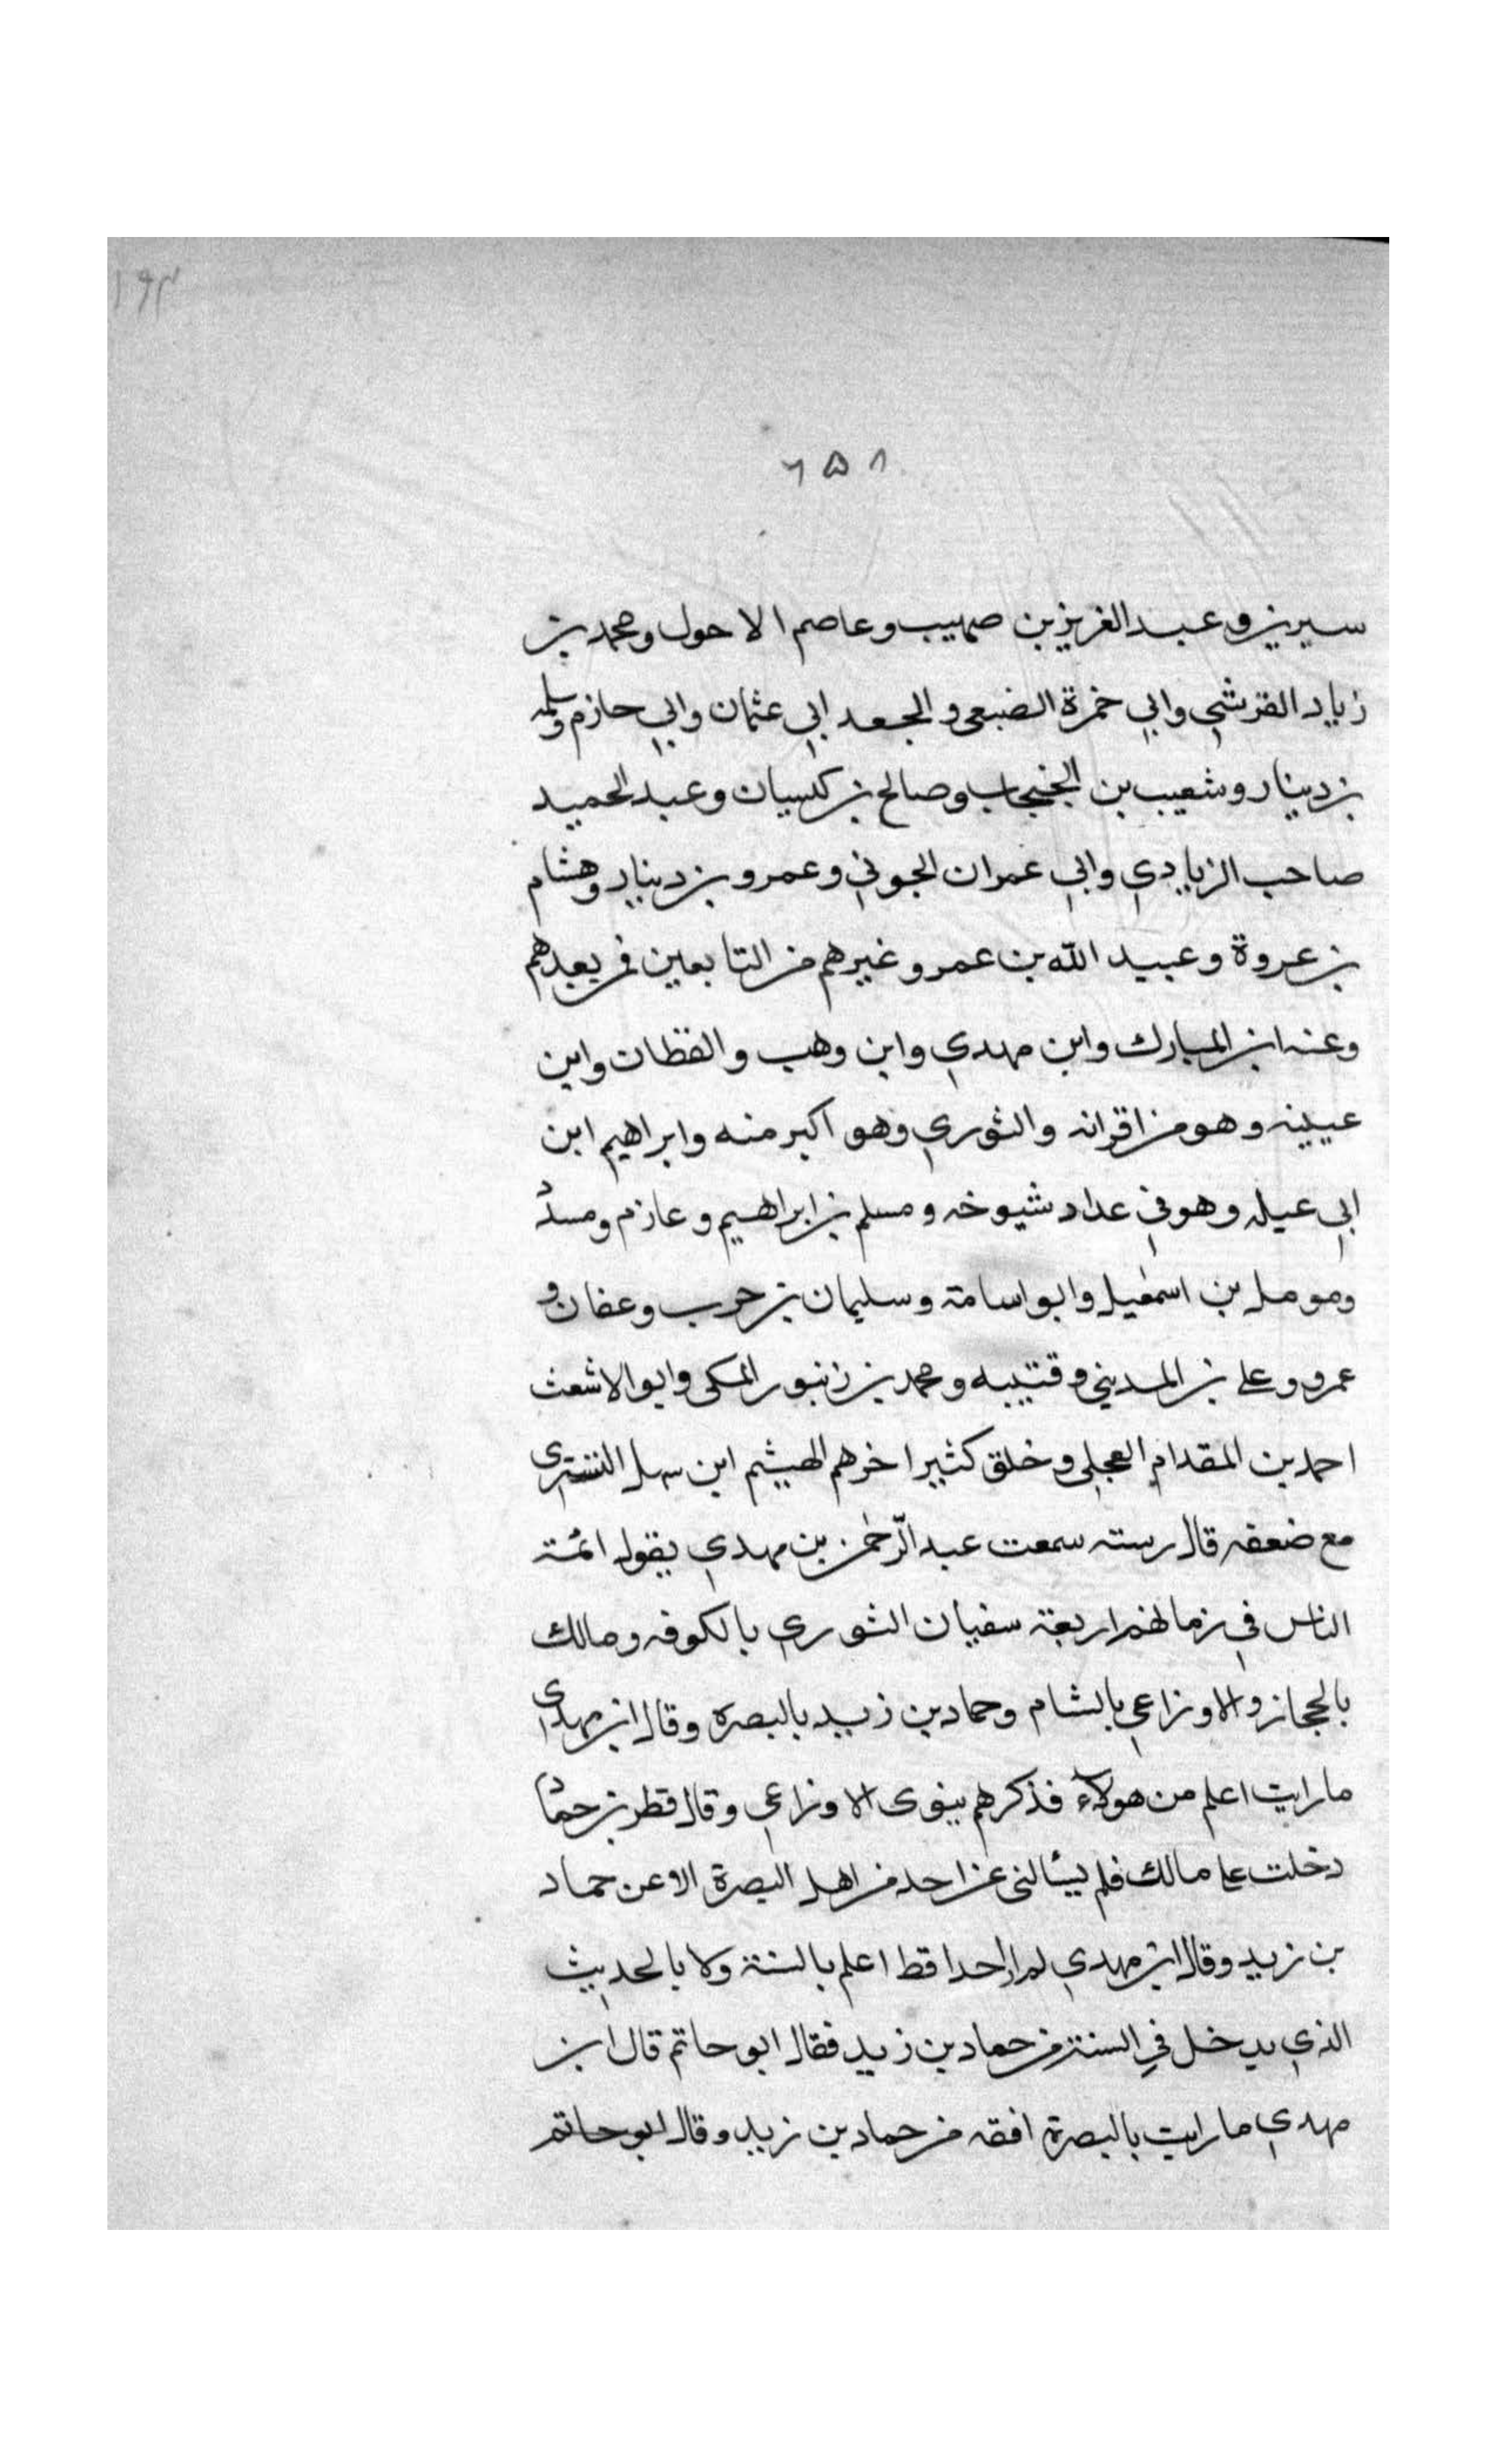 ۱۶۳
۶۵۸
سيرين وعبد الغريز بن صهيب وعاصم الاحول ومحمد بن
زياد القرشي وابي خمرة الضبعي والجعد ابي عثمان وابي حازم وسلمه
بن دينار وشعيب بن الخبجاب وصالح بن كيسان وعبد الحميد
صاحب الزيادي وابي عمران الجوني وعمرو بن دينار وهشام
بن عروة وعبيد الله بن عمر وغيرهم من التابعين فمن بعدهم
وعنه ابن المبارك وابن مهدي وابن وهب والقظان وابن
عيينه وهو من اقرانه والثوري وهو اكبر منه وابراهيم ابن
ابي عيله وهو في عداد شيوخه ومسلم بن ابراهيم وعازم ومسدد
ومومل بن اسمعيل وابو اسامة وسليمان بن حرب وعفان و
عمرو وعلي بن المديني وقتيبه ومحمد بن زنبور المكي وابو الاشعث
احمد بن المقدام العجلي وخلق كثير اخرهم الهيثم ابن سهل التستري
مع ضعفه قال رسته سمعت عبد الرحمن بن مهدي يقول ائمة
الناس في زمانهم اربعة سفيان الثوري بالكوفه ومالك
بالحجاز والاوزاعي بالشام وحماد بن زيد بالبصره وقال ابن مهدي
ما رايت اعلم من هولاء فذكرهم سوى الاوزاعي وقال فطر بن حماد
دخلت علي مالك فلم يسألني عن احد من اهل البصرة الا عن حماد
بن زيد وقال ابن مهدي لم ار احدا قط اعلم بالسنة ولا بالحديث
الذي يدخل في السنة من حماد بن زيد فقال ابو حاتم قال ابن
مهدي ما رايت بالبصرة افقه من حماد بن زيد وقال ابو حاتم